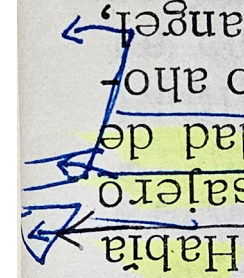 Había
sajero
dad de
o aho-
angel,